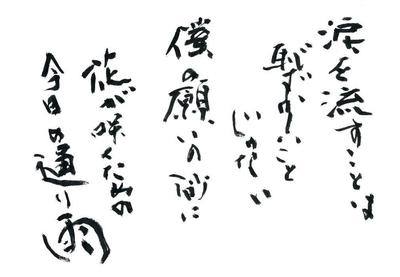 涙を流すことは
恥ずかしいこと
じゃない
僕の願いの砂に
花が咲くための
今日の通り雨